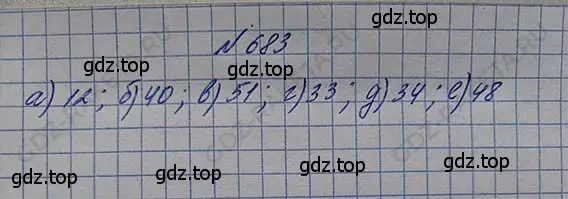 № 683
gdz.top gdz.top
а) 12; б) 40; в) 51; г) 33; д) 34; е) 48
gdz.top gdz.top gdz.top